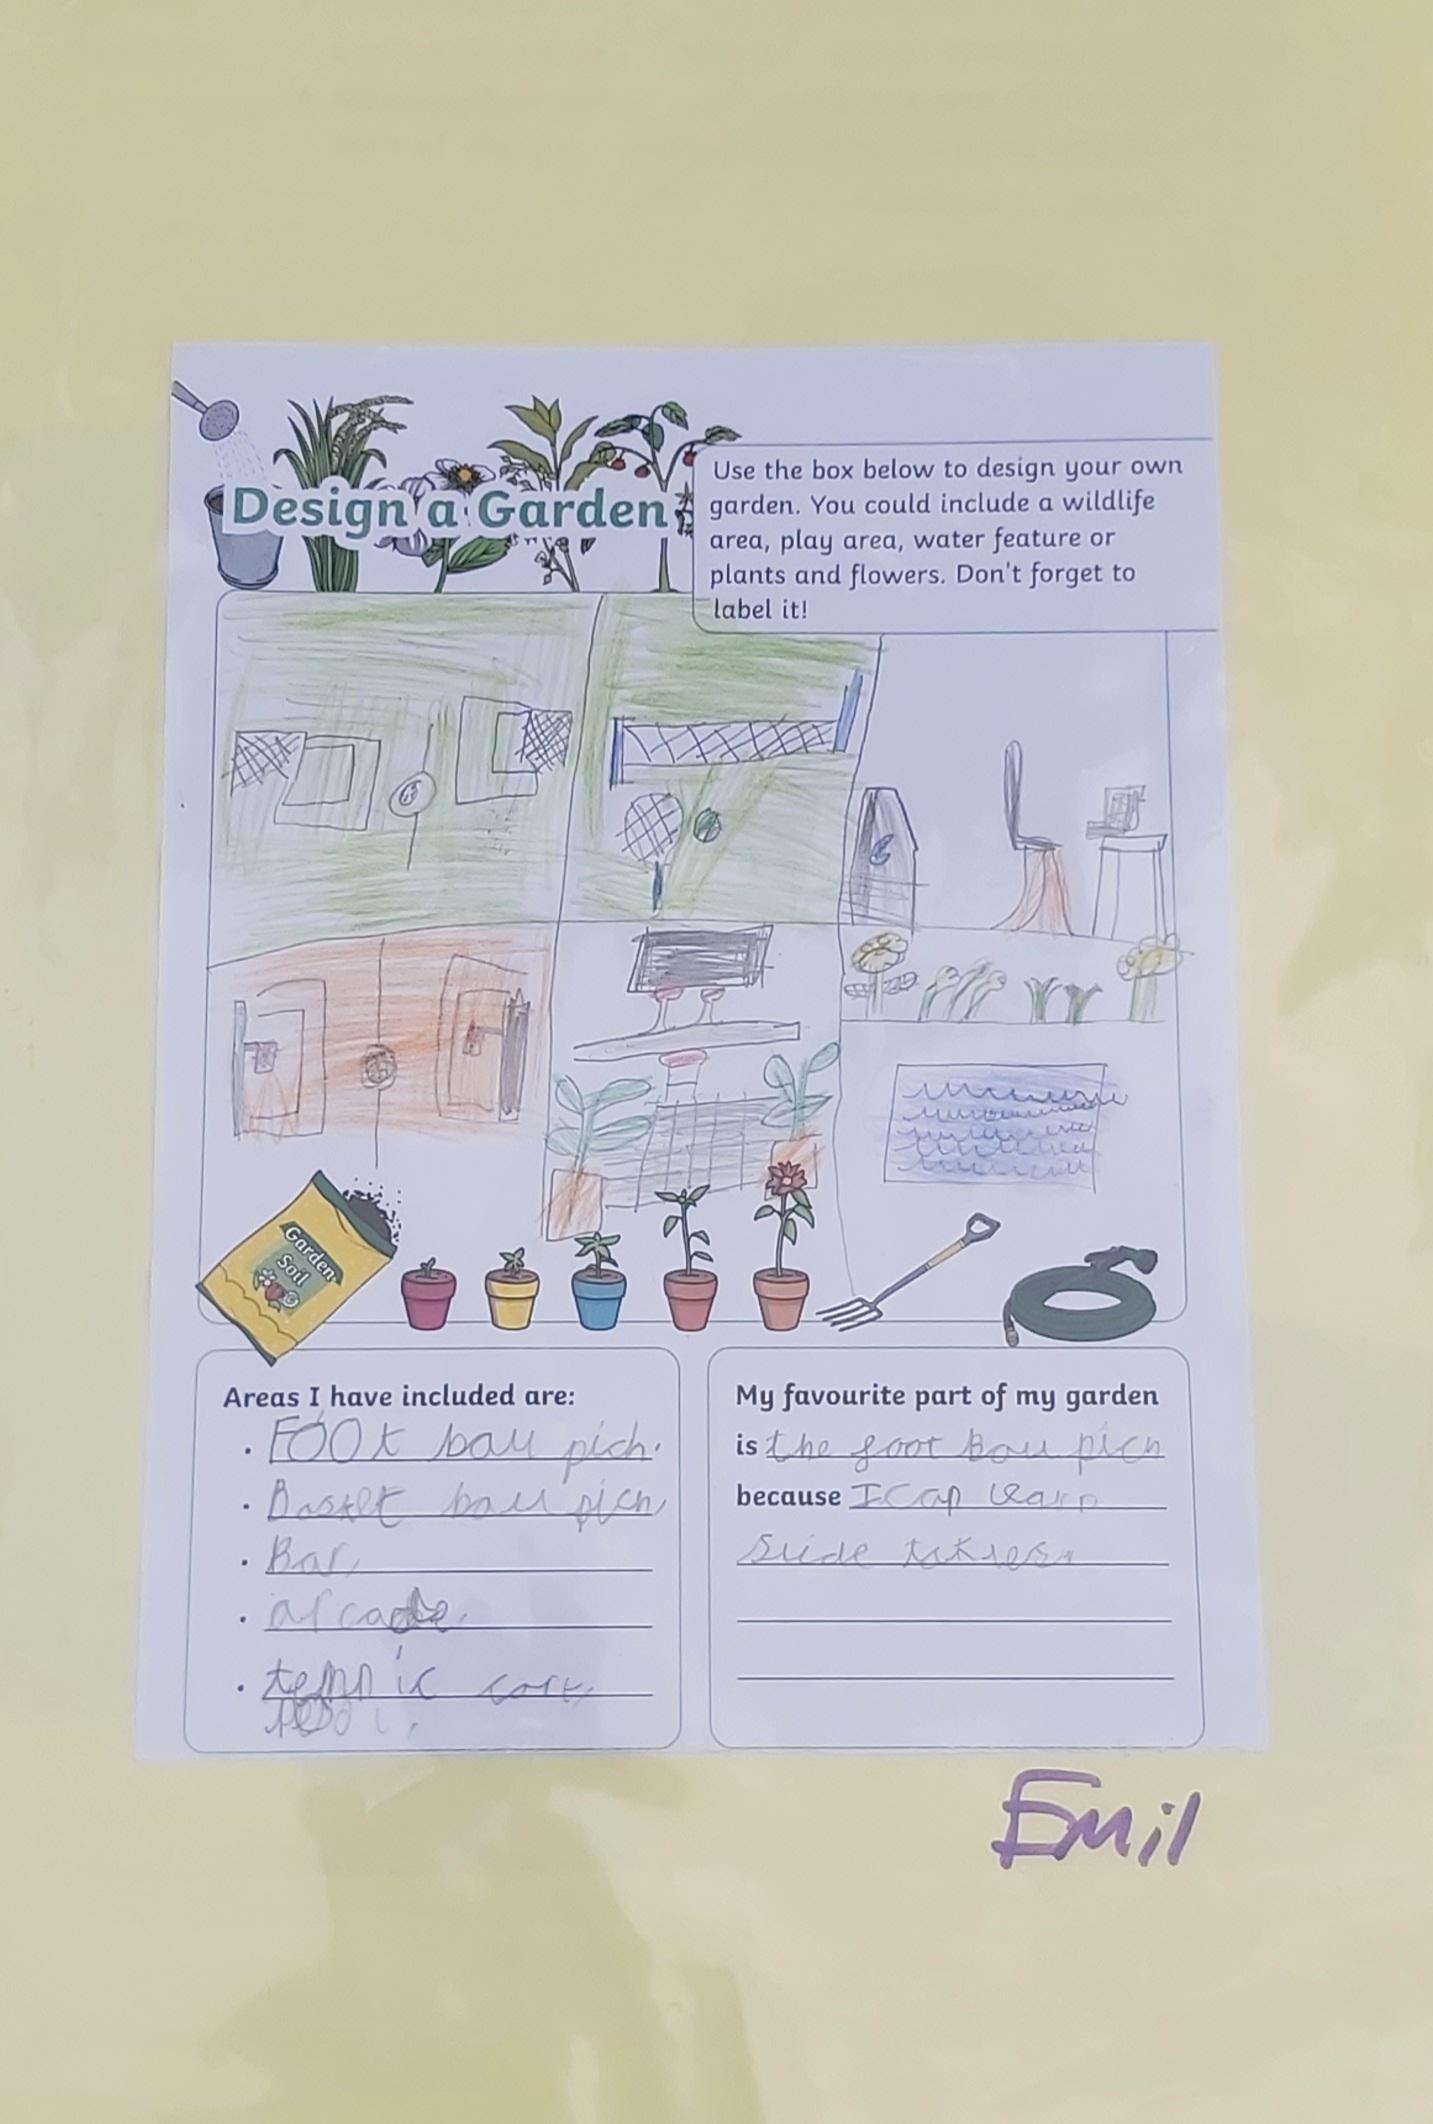 Design a Garden
Use the box below to design your own
garden. You could include a wildlife
area, play area, water feature or
plants and flowers. Don't forget to
label it!
Garden
Soil
Areas I have included are:
• FOOt ball pich.
• Basket ball pich,
• Bar,
• arcade,
• tennic cort,
My favourite part of my garden
is the foot Ball pich
because I can learn
slide
Emil